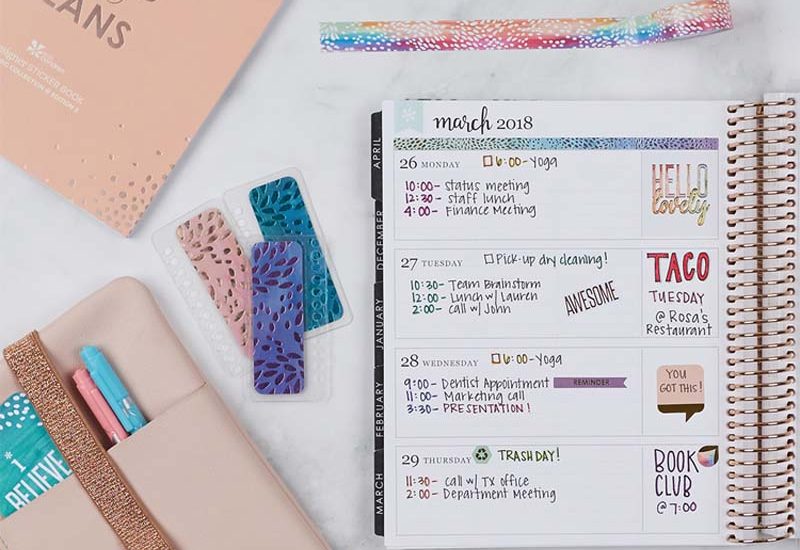 PLANS
DESIGNER STICKER BOOK
march 2018
26 MONDAY
6:00-Yoga
10:00- Status meeting
12:30- staff lunch
4:00- Finance Meeting
HELLO
lovely
27 TUESDAY
Pick-up dry cleaning!
10:30- Team Brainstorm
12:00- Lunch w/ Lauren
2:00- call w/ John
AWESOME
TACO
TUESDAY
@ Rosa's
Restaurant
28 WEDNESDAY
6:00-Yoga
9:00- Dentist Appointment
REMINDER
11:00- Marketing call
3:30- PRESENTATION!
YOU
GOT THIS!
29 THURSDAY
TRASH DAY!
11:30- call w/ TX office
2:00- Department Meeting
BOOK
CLUB
@ 7:00
APRIL
DECEMBER
JANUARY
FEBRUARY
MARCH
I
BELIEVE